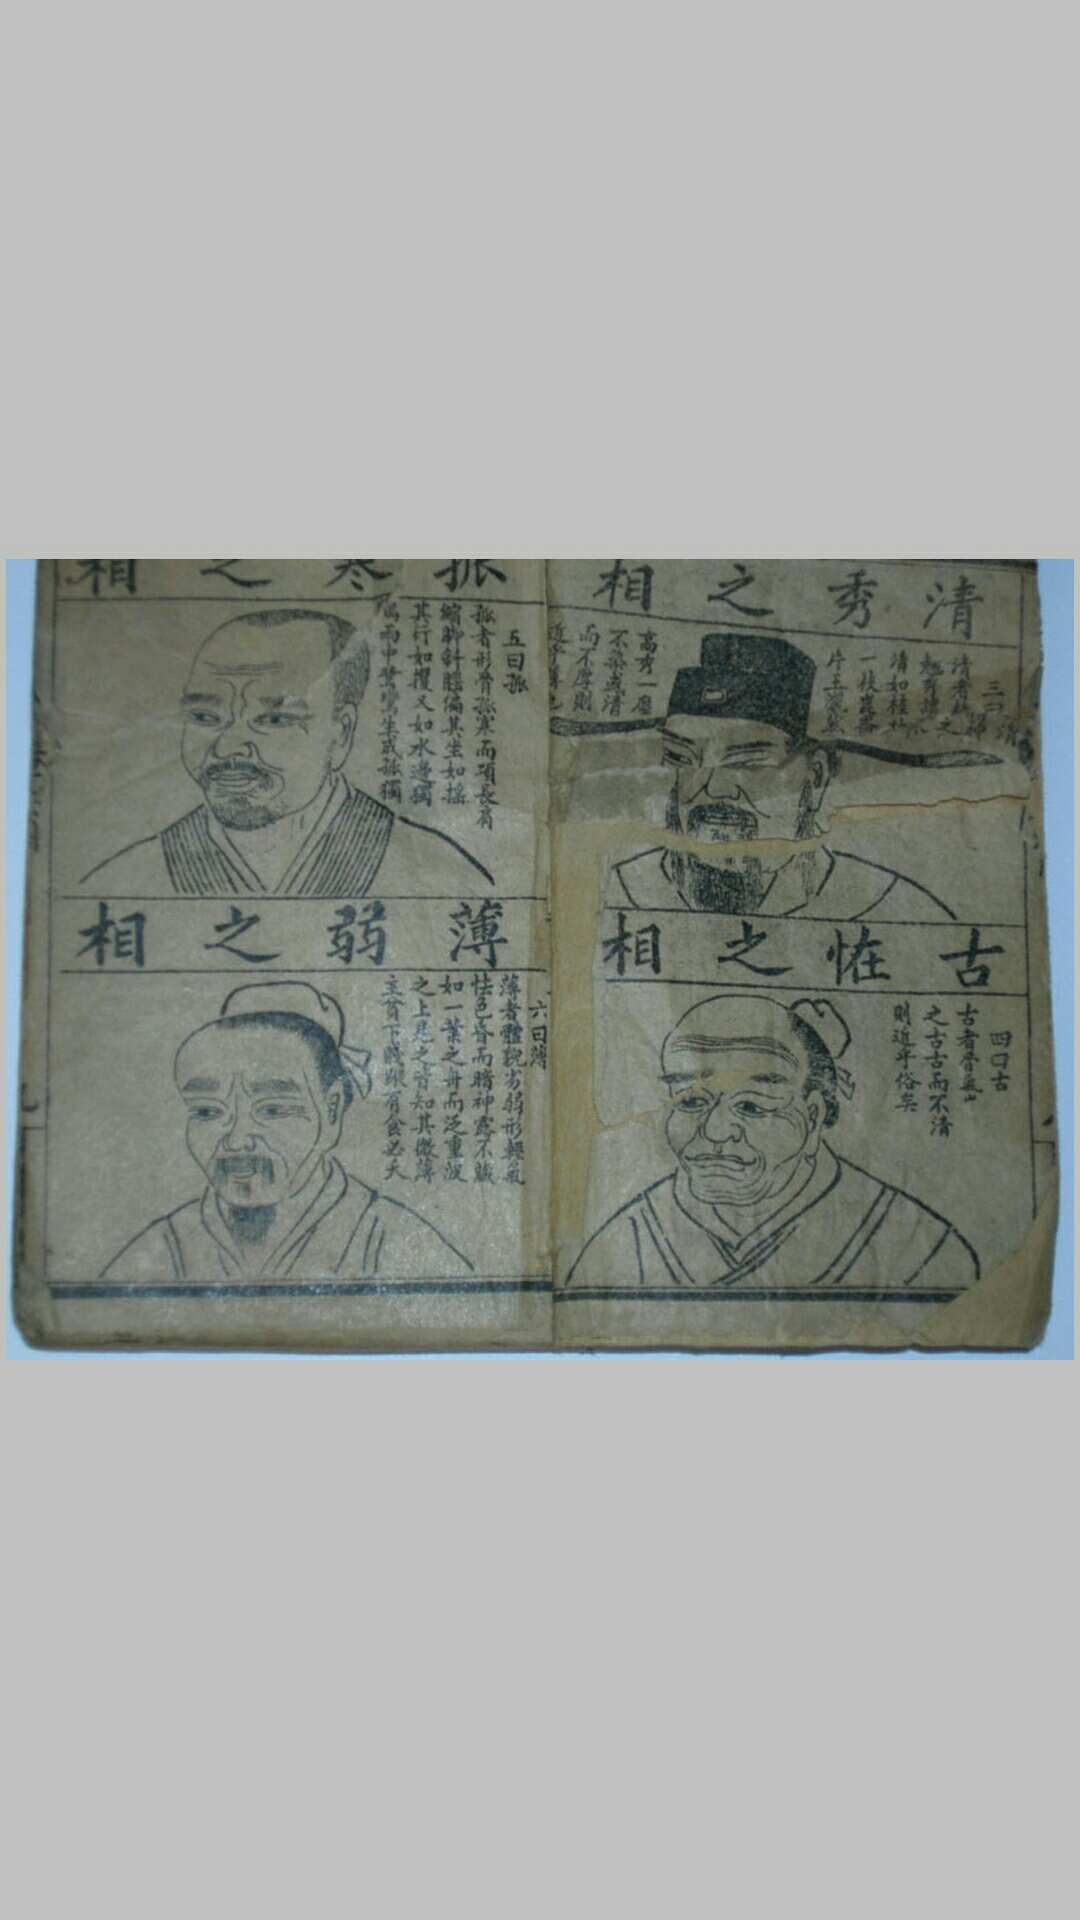 清秀之相
三曰清
清如桂林
一枝崑崙
片玉
高秀一塵
不染
而不厚則
近乎薄也
古恠之相
四曰古
古者骨氣
之古古而不清
則近乎俗矣
孤寒之相
五曰孤
孤者形骨孤寒而項長肩
縮脚斜腦偏其坐如搖
其行如攫又如水邊獨
雨中鷺鷥生成孤獨
薄弱之相
六曰薄
薄者體貌劣弱形輕氣
怯色昏而暗神露不藏
如一葉之舟而泛重波
之上見之皆知其微薄
主貧下賤縱有食必夭